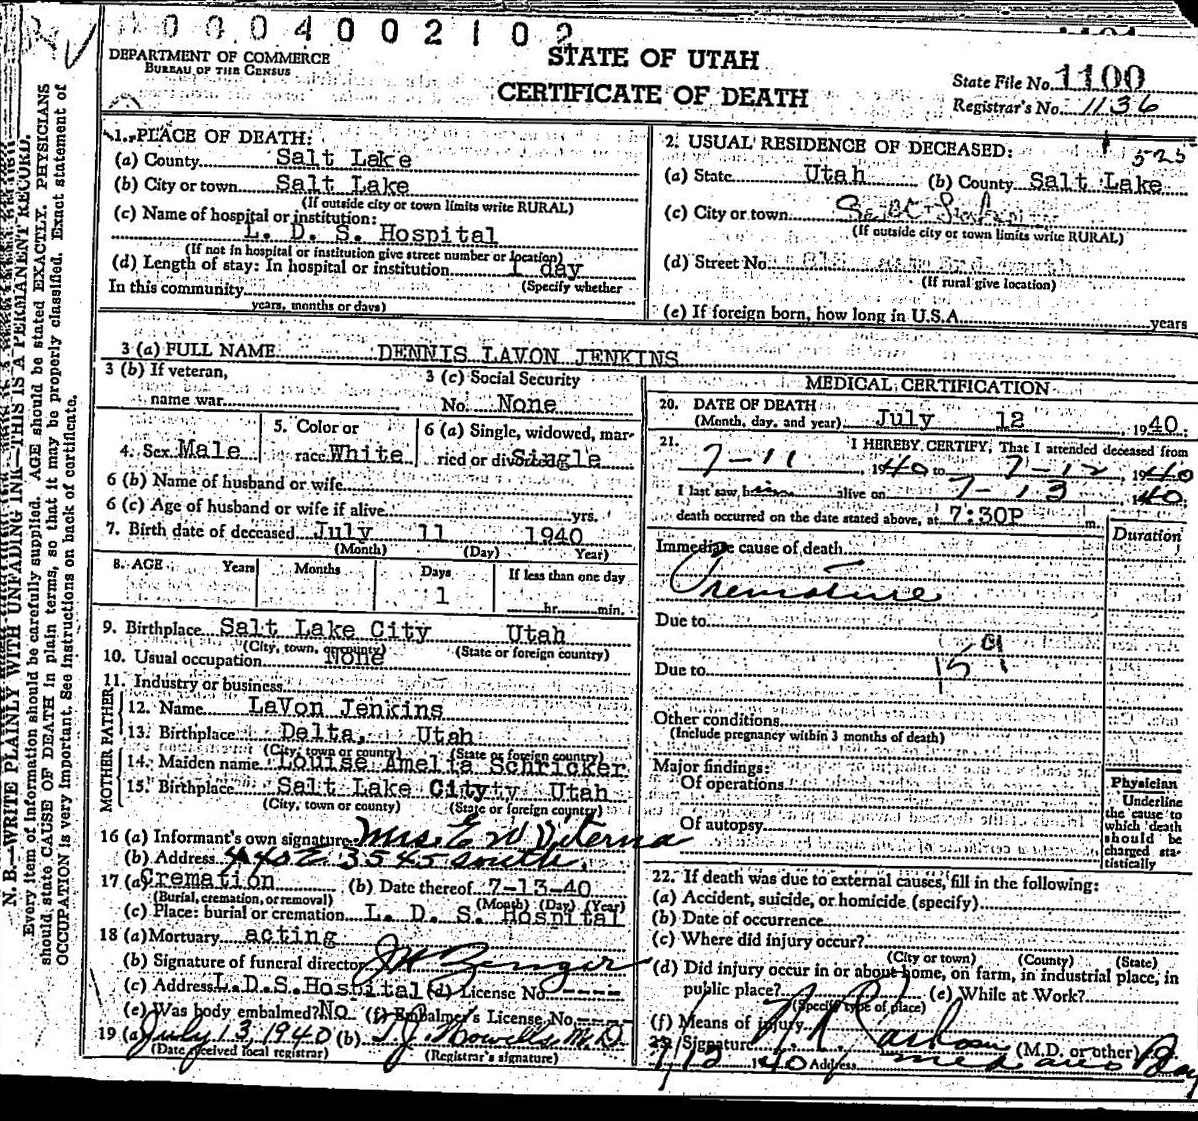 0004002102
DEPARTMENT OF COMMERCE
BUREAU OF THE CENSUS
STATE OF UTAH
CERTIFICATE OF DEATH
State File No. 1100
Registrar's No. 1136
N. B.—WRITE PLAINLY WITH UNFADING INK—THIS IS A PERMANENT RECORD.
Every item of information should be carefully supplied. AGE should be stated EXACTLY. PHYSICIANS
should state CAUSE OF DEATH in plain terms, so that it may be properly classified. Exact statement of
OCCUPATION is very important. See Instructions on back of certificate.
1. PLACE OF DEATH:
(a) County Salt Lake
(b) City or town Salt Lake
(If outside city or town limits write RURAL)
(c) Name of hospital or institution:
L. D. S. Hospital
(If not in hospital or institution give street number or location)
(d) Length of stay: In hospital or institution 1 day
(Specify whether
In this community
years, months or days)
2. USUAL RESIDENCE OF DECEASED:
525
(a) State Utah (b) County Salt Lake
(c) City or town
(If outside city or town limits write RURAL)
(d) Street No.
(If rural give location)
(e) If foreign born, how long in U.S.A. years
3 (a) FULL NAME DENNIS LAVON JENKINS
3 (b) If veteran,
name war
3 (c) Social Security
No. None
4. Sex Male
5. Color or
race White
6 (a) Single, widowed, mar-
ried or divorced Single
6 (b) Name of husband or wife
6 (c) Age of husband or wife if alive yrs.
7. Birth date of deceased July 11 1940
(Month) (Day) Year)
8. AGE Years Months Days If less than one day
1 hr. min.
9. Birthplace Salt Lake City Utah
(City, town, or county) (State or foreign country)
10. Usual occupation None
11. Industry or business
FATHER
12. Name LaVon Jenkins
13. Birthplace Delta, Utah
(City, town or county) (State or foreign country)
MOTHER
14. Maiden name Louise Amelia Schricker
15. Birthplace Salt Lake City Utah
(City, town or county) (State or foreign country)
16 (a) Informant's own signature Mrs. E W
(b) Address 3545 south
17 (a) Cremation (b) Date thereof 7-13-40
(Burial, cremation, or removal) (Month) (Day) (Year)
(c) Place: burial or cremation L. D. S. Hospital
18 (a) Mortuary acting
(b) Signature of funeral director
(c) Address L.D.S. Hospital (d) License No. ----
(e) Was body embalmed? No (f) Embalmer's License No. ----
19 (a) July 13, 1940 (b) M.D.
(Date received local registrar) (Registrar's signature)
MEDICAL CERTIFICATION
20. DATE OF DEATH
(Month, day, and year) July 12 1940.
21. I HEREBY CERTIFY, That I attended deceased from
7-11, 1940 to 7-12, 1940
I last saw him alive on 7-13 1940.
death occurred on the date stated above, at 7:30P m.
Duration
Immediate cause of death
Premature
Due to
159
Due to
Other conditions
(Include pregnancy within 3 months of death)
Major findings:
Of operations
Of autopsy
Physician
Underline
the cause to
which death
should be
charged sta-
tistically
22. If death was due to external causes, fill in the following:
(a) Accident, suicide, or homicide (specify)
(b) Date of occurrence
(c) Where did injury occur?
(City or town) (County) (State)
(d) Did injury occur in or about home, on farm, in industrial place, in
public place? (e) While at Work?
(Specify type of place)
(f) Means of injury
23. Signature (M.D. or other)
7/12 1940 Address